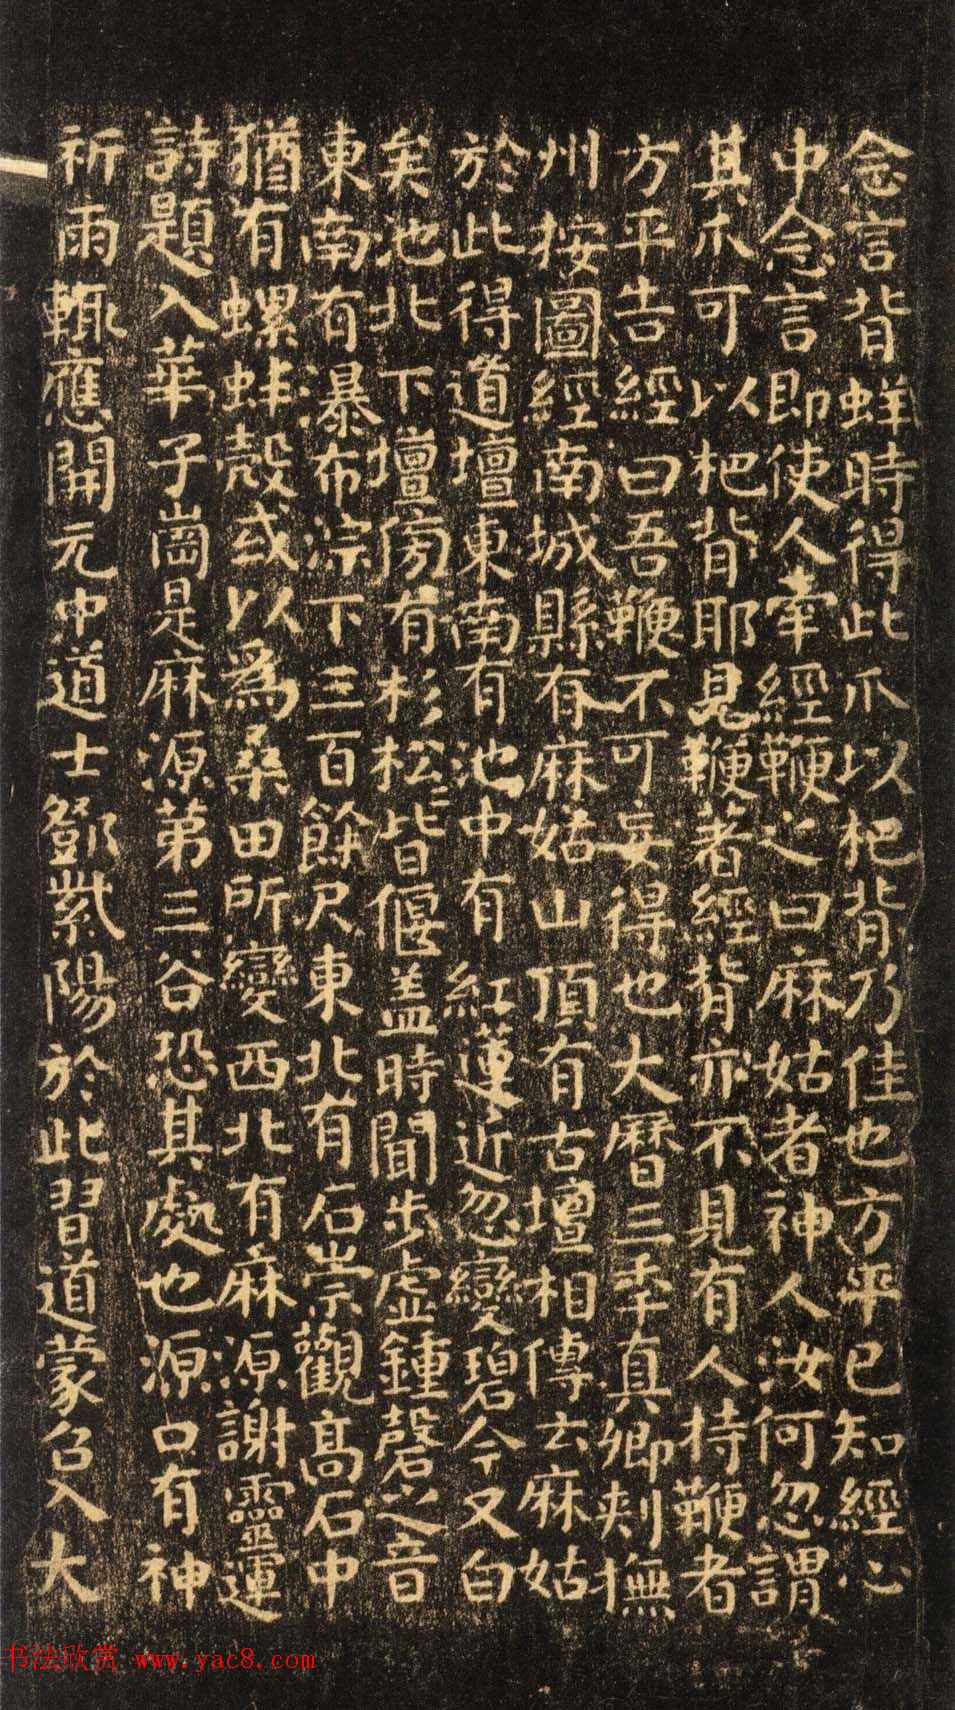 念言背蛘時得此爪以杷背乃佳也方平已知經心
中念言即使人牽經鞭之曰麻姑者神人汝何忽謂
其爪可以杷背耶見鞭著經背亦不見有人持鞭者
方平告經曰吾鞭不可妄得也大曆三季真卿刺撫
州按圖經南城縣有麻姑山頂有古壇相傳云麻姑
於此得道壇東南有池中有紅蓮近忽變碧今又白
矣池北下壇傍有杉松松皆偃盖時聞步虛鍾磬之音
東南有瀑布淙下三百餘尺東北有石崇觀高石中
猶有螺蚌殼或以為桑田所變西北有麻源謝靈運
詩題入華子崗是麻源第三谷恐其處也源口有神
祈雨輒應開元中道士鄧紫陽於此習道蒙召入大
书法欣赏 www.yac8.com